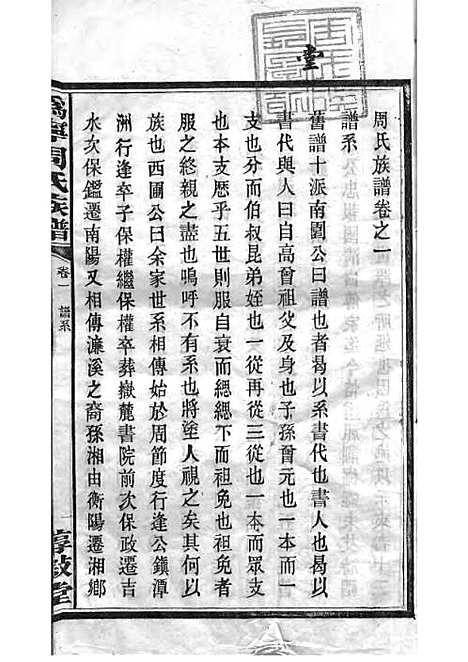 堂
周氏族譜卷之一
譜系
舊譜十派南園公曰譜也曷以系書代也書人也曷以
書代與人曰自高曾祖父及身也子孫曾元也一本而一
支也分而伯叔昆弟姪也一從再從三從也一本而眾支
也本支歷乎五世則服自衰而緦緦下而祖免也祖免者
服之終親之盡也嗚呼不有系也將塗人視之矣其何以
族也西圃公曰余家世系相傳始於周節度行逢公鎮潭
洲行逢卒子保權繼保權卒葬嶽麓書院前次保政遷吉
水次保鑑遷南陽又相傳濂溪之裔孫湘由衡陽遷湘鄉
溈寧周氏族譜
卷一
譜系
一
敦堂